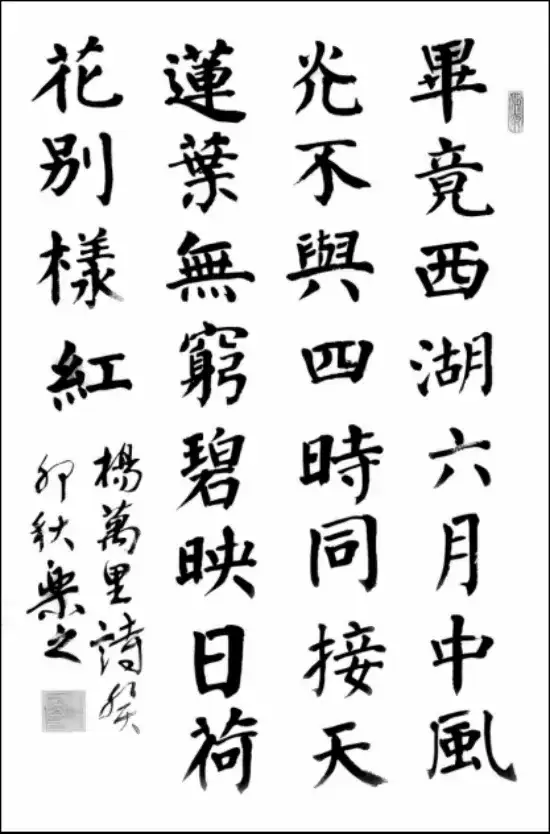 畢竟西湖六月中風
光不與四時同接天
蓮葉無窮碧映日荷
花別樣紅
楊萬里詩癸
卯秋樂之